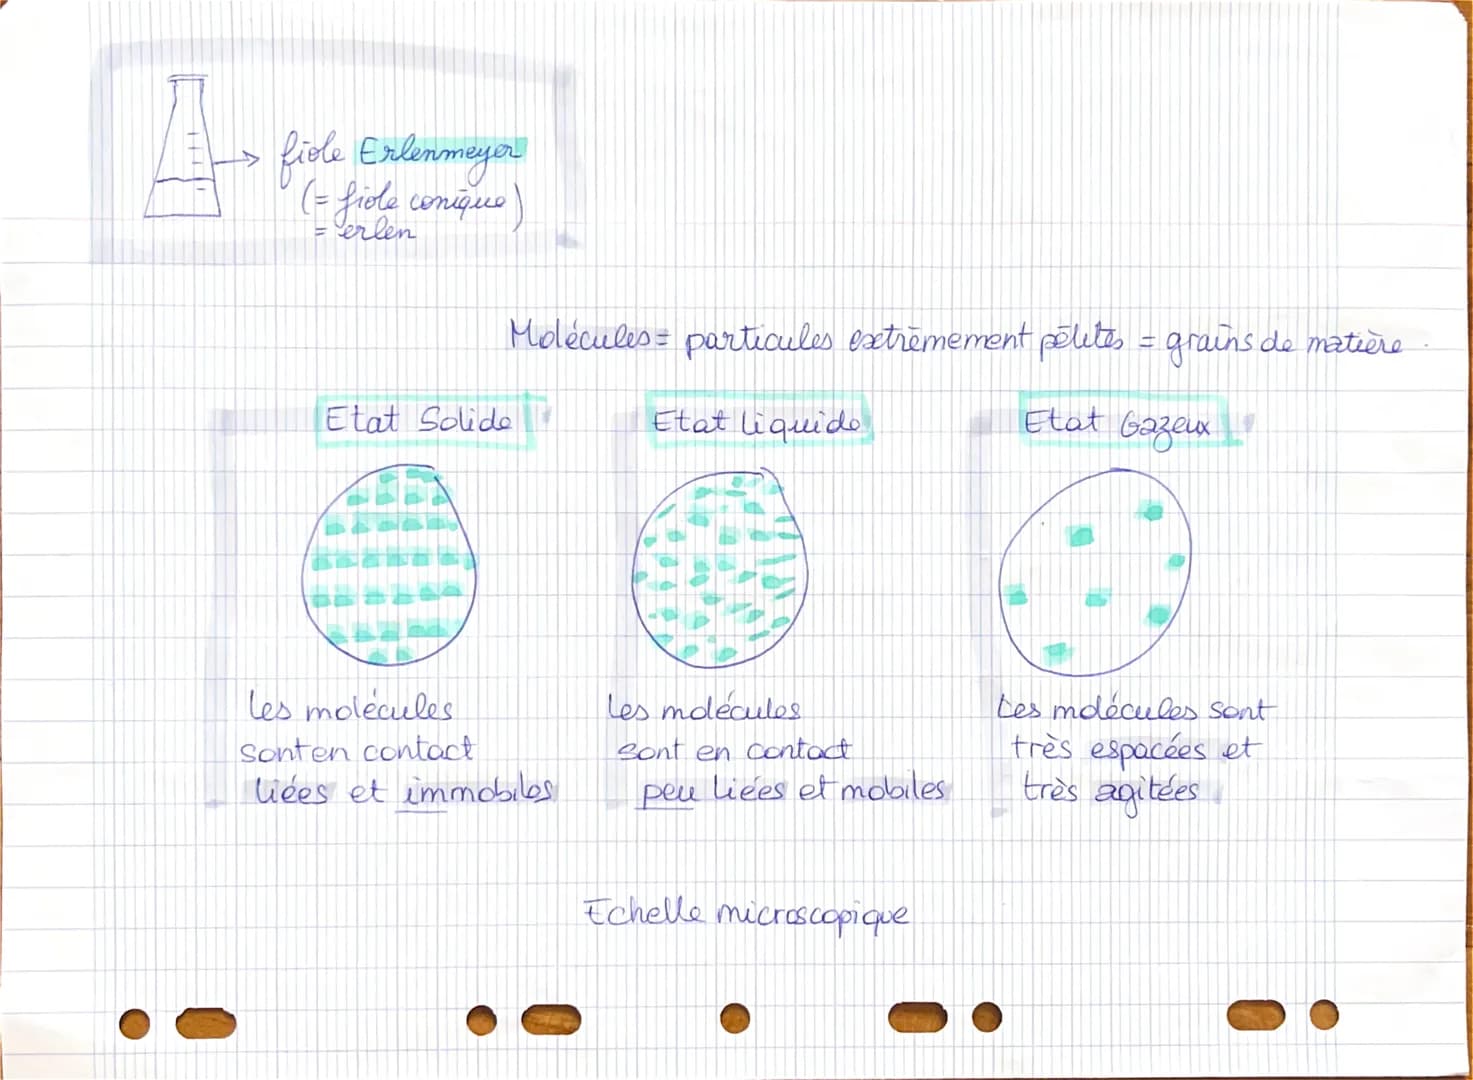 fiole Erlenmeyer
(= fiole conique)
= erlen
Molécules = particules extrêmement petites = grains de matière.
Etat Solide
Etat liquide
Etat Gazeux
les molécules
sont en contact
liées et immobiles
les molécules
sont en contact
peu liées et mobiles
Les molécules sont
très espacées et
très agitées
Echelle microscopique